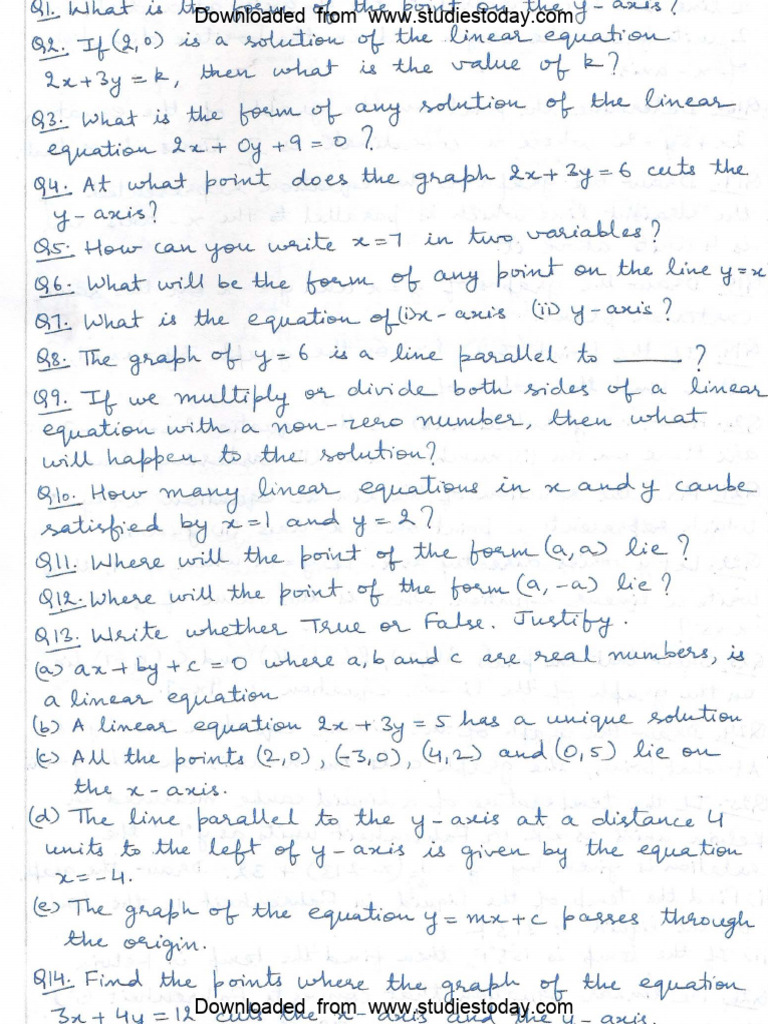 Q1. What is the form of the point on the y-axis?
Downloaded from www.studiestoday.com
Q2. If (2,0) is a solution of the linear equation
2x+3y=k, then what is the value of k?
Q3. What is the form of any solution of the linear
equation 2x + 0y + 9 = 0 ?
Q4. At what point does the graph 2x+3y=6 cuts the
y-axis?
Q5. How can you write x=7 in two variables?
Q6. What will be the form of any point on the line y=x
Q7. What is the equation of (i) x-axis (ii) y-axis ?
Q8. The graph of y=6 is a line parallel to ______ ?
Q9. If we multiply or divide both sides of a linear
equation with a non-zero number, then what
will happen to the solution?
Q10. How many linear equations in x and y canbe
satisfied by x=1 and y=2?
Q11. Where will the point of the form (a,a) lie ?
Q12. Where will the point of the form (a,-a) lie ?
Q13. Write whether True or False. Justify.
(a) ax+by+c=0 where a,b and c are real numbers, is
a linear equation
(b) A linear equation 2x+3y=5 has a unique solution
(c) All the points (2,0), (-3,0), (4,2) and (0,5) lie on
the x-axis.
(d) The line parallel to the y-axis at a distance 4
units to the left of y-axis is given by the equation
x=-4.
(e) The graph of the equation y=mx+c passes through
the origin.
Q14. Find the points where the graph of the equation
3x+4y=12 cuts the x-axis and the y-axis.
Downloaded from www.studiestoday.com